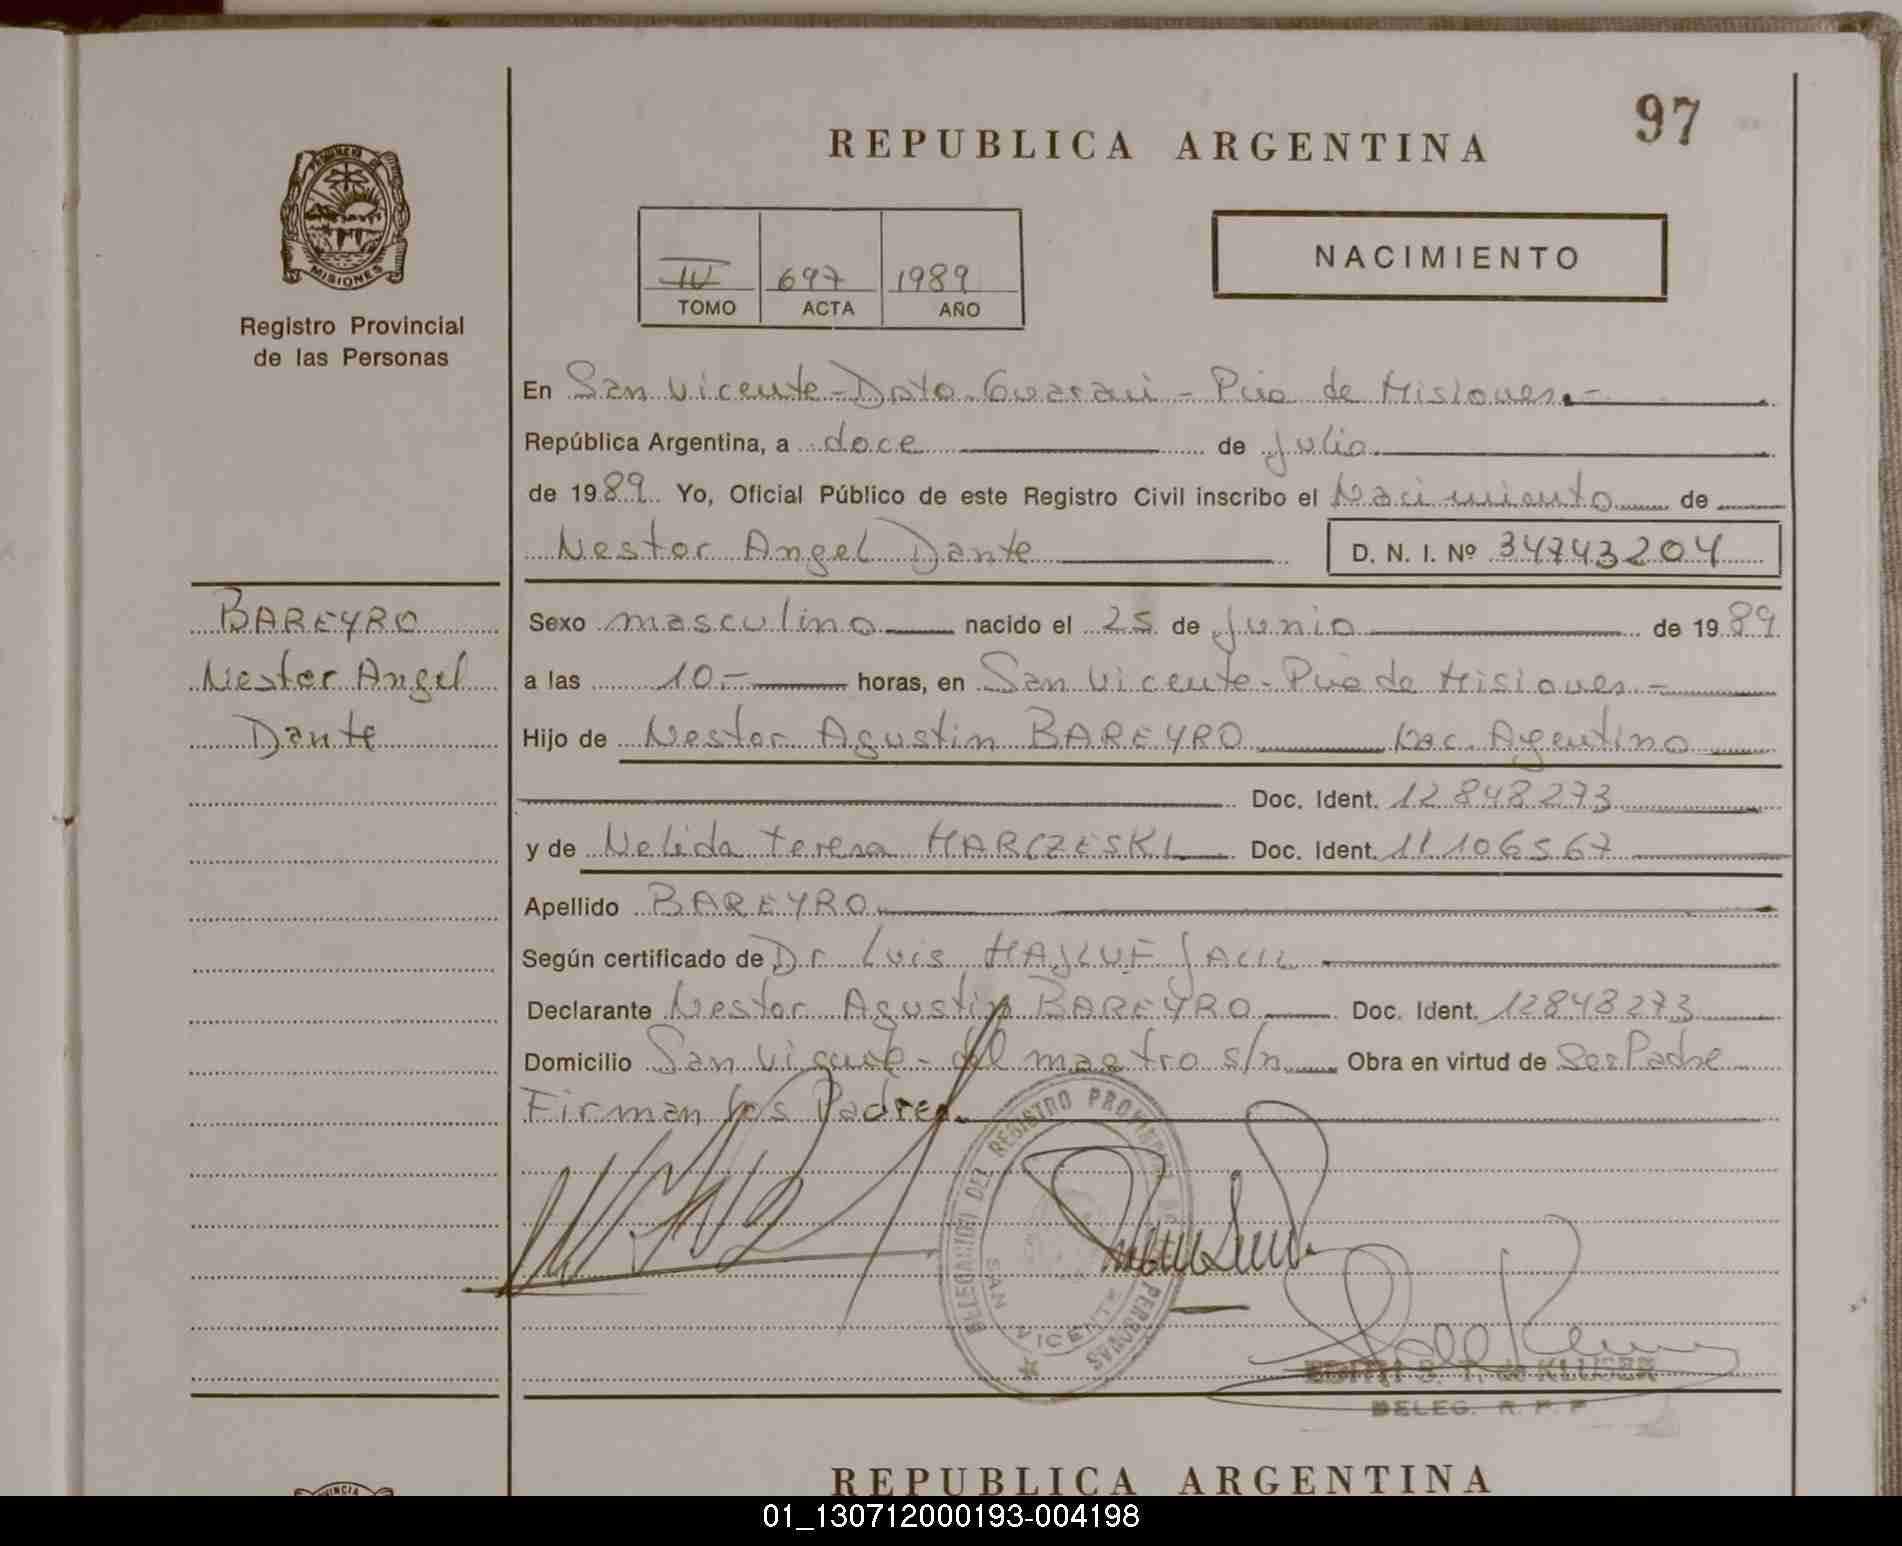 97
REPUBLICA ARGENTINA
PROVINCIA DE
MISIONES
Registro Provincial
de las Personas
NACIMIENTO
IV 697 1989
TOMO ACTA AÑO
En San Vicente - Dpto. Guarani - Pcia de Misiones.-
República Argentina, a doce de julio
de 1989 Yo, Oficial Público de este Registro Civil inscribo el Nacimiento de
Nestor Angel Dante D. N. I. Nº 34743204
BAREYRO
Nestor Angel
Dante
Sexo masculino nacido el 25 de junio de 1989
a las 10.- horas, en San Vicente - Pcia de Misiones -
Hijo de Nestor Agustin BAREYRO Nac. Agentino
Doc. Ident. 12848273
y de Nelida Teresa MARCZESKI Doc. Ident. 11106567
Apellido BAREYRO
Según certificado de Dr Luis MAJLUF
Declarante Nestor Agustin BAREYRO Doc. Ident. 12848273
Domicilio San Vicente - del maestro s/n Obra en virtud de Ser Padre
Firman los Padres.
DELEGACION DEL REGISTRO PROVINCIAL DE PERSONAS
SAN VICENTE
EDITH S. T. de KLUSER
DELEG. R. P. P
REPUBLICA ARGENTINA
01_130712000193-004198